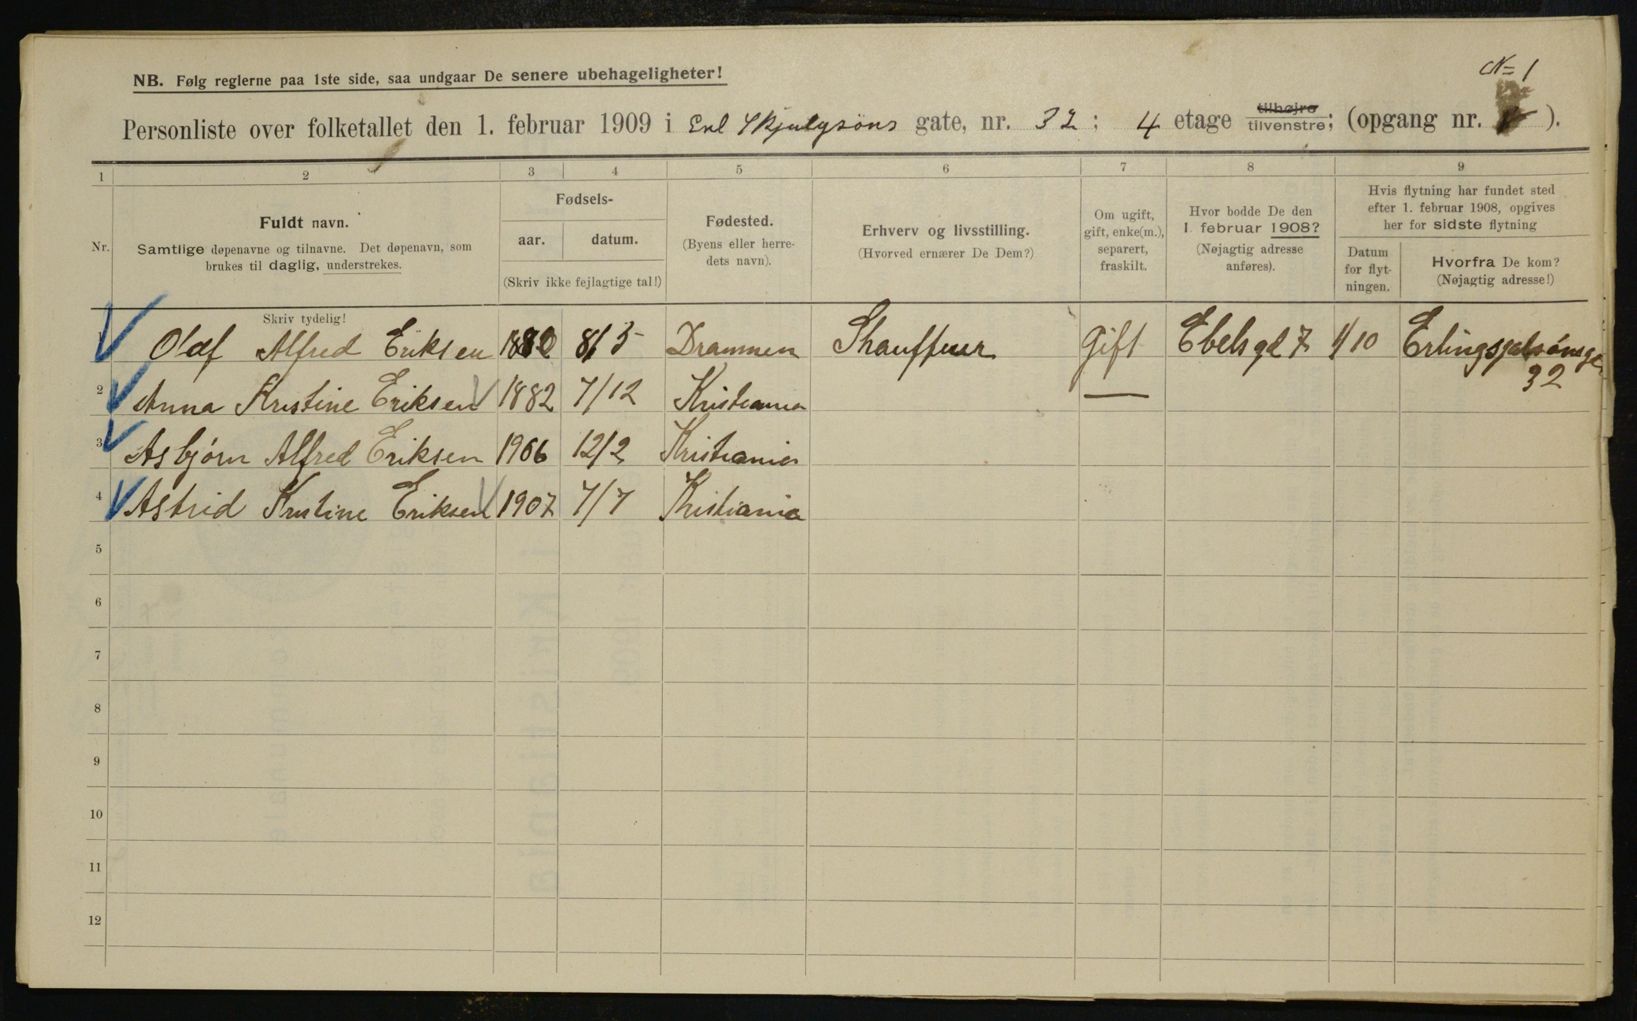 NB. Følg reglerne paa 1ste side, saa undgaar De senere ubehageligheter!
N= 1
Personliste over folketallet den 1. februar 1909 i Erl Skjalgsöns gate, nr. 32; 4 etage tilhøjre tilvenstre; (opgang nr. ).
1 2 3 4 5 6 7 8 9
Nr.
Fuldt navn.
Samtlige døpenavne og tilnavne. Det døpenavn, som
brukes til daglig, understrekes.
Skriv tydelig!
Fødsels-
aar. datum.
(Skriv ikke fejlagtige tal!)
Fødested.
(Byens eller herre-
dets navn).
Erhverv og livsstilling.
(Hvorved ernærer De Dem?)
Om ugift,
gift, enke(m.),
separert,
fraskilt.
Hvor bodde De den
1. februar 1908?
(Nøjagtig adresse
anføres).
Hvis flytning har fundet sted
efter 1. februar 1908, opgives
her for sidste flytning
Datum
for flyt-
ningen.
Hvorfra De kom?
(Nøjagtig adresse!)
1 Olaf Alfred Eriksen 1880 8/5 Drammen Shauffuer Gift Ebels gt 7 1/10
32
2 Anna Kristine Eriksen 1882 7/12 Kristiania —
3 Asbjørn Alfred Eriksen 1906 12/2 Kristiania
4 Astrid Kristine Eriksen 1907 7/7 Kristiania
5
6
7
8
9
10
11
12